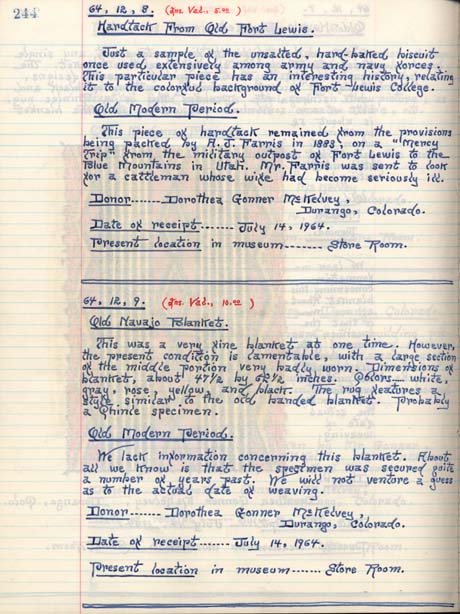 244
64, 12, 8. (Ins. Val., 5.00)
Hardtack From Old Fort Lewis.
Just a sample of the unsalted, hard-baked biscuit
once used extensively among army and navy forces.
This particular piece has an interesting history, relating
it to the colorful background of Fort Lewis College.
Old Modern Period.
This piece of hardtack remained from the provisions
being packed by A. J. Farris in 1883, on a "Mercy
Trip" from the military outpost of Fort Lewis to the
Blue Mountains in Utah. Mr. Farris was sent to cook
for a cattleman whose wife had become seriously ill.
Donor....... Dorothea Gonner McKelvey,
Durango, Colorado.
Date of receipt....... July 14, 1964.
Present location in museum....... Store Room.
64, 12, 9. (Ins. Val., 10.00)
Old Navajo Blanket.
This was a very fine blanket at one time. However,
the present condition is lamentable, with a large section
of the middle portion very badly worn. Dimensions of
blanket, about 47½ by 62½ inches. Colors.... white,
gray, rose, yellow, and black. The rug features a
style similar to the old banded blanket. Probably
a Chinle specimen.
Old Modern Period.
We lack information concerning this blanket. About
all we know is that the specimen was secured quite
a number of years past. We will not venture a guess
as to the actual date of weaving.
Donor....... Dorothea Gonner McKelvey,
Durango, Colorado.
Date of receipt....... July 14, 1964.
Present location in museum....... Store Room.